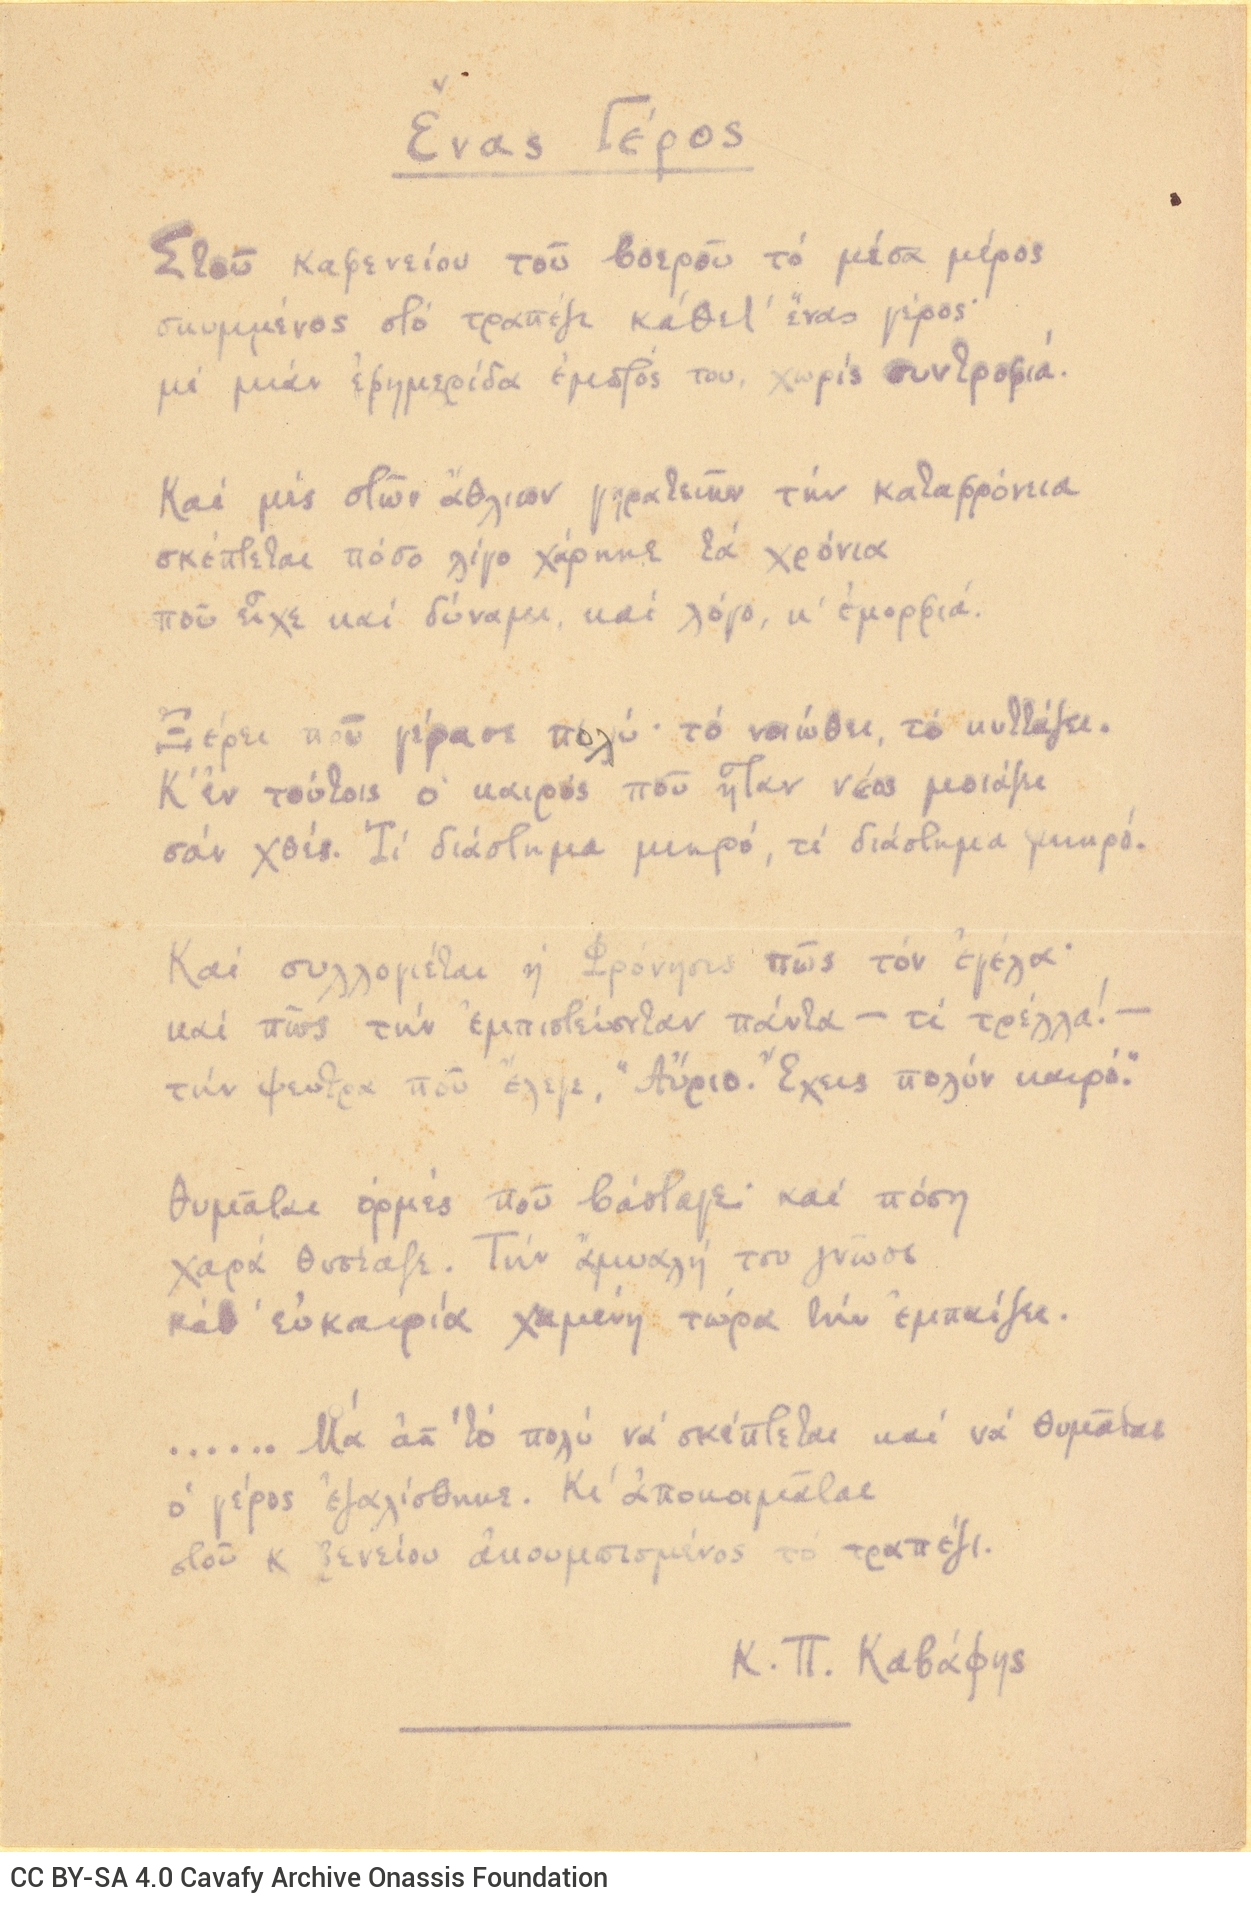 Ἕνας Γέρος
Στοῦ καφενείου τοῦ βοεροῦ τὸ μέσα μέρος
σκυμμένος στὸ τραπέζι κάθετ' ἕνας γέρος·
μὲ μιὰν ἐφημερίδα ἐμπρός του, χωρὶς συντροφιά.
Καὶ μὲς στῶν ἄθλιων γηρατειῶν τὴν καταφρόνια
σκέπτεται πόσο λίγο χάρηκε τὰ χρόνια
ποῦ εἶχε καὶ δύναμι, καὶ λόγο, κ' ἐμορφιά.
Ξέρει ποῦ γέρασε πολύ· τὸ νοιώθει, τὸ κυττάζει.
Κ' ἐν τούτοις ὁ καιρὸς ποῦ ἦταν νέος μοιάζει
σὰν χθές. Τί διάστημα μικρό, τί διάστημα μικρό.
Καὶ συλλογιέται ἡ Φρόνησις πῶς τὸν ἐγέλα·
καὶ πῶς τὴν ἐμπιστεύονταν πάντα — τί τρέλλα! —
τὴν ψεύτρα ποῦ ἔλεγε, "Αὔριο. Ἔχεις πολὺν καιρό."
Θυμᾶται ὁρμὲς ποῦ βάσταγε· καὶ πόση
χαρὰ θυσίαζε. Τὴν ἄμυαλή του γνῶσι
κάθ' εὐκαιρία χαμένη τώρα τὴν ἐμπαίζει.
...... Μὰ ἀπ' τὸ πολὺ νὰ σκέπτεται καὶ νὰ θυμᾶται
ὁ γέρος ἐζαλίσθηκε. Κι' ἀποκοιμᾶται
στοῦ κ φενείου ἀκουμπισμένος τὸ τραπέζι.
Κ. Π. Καβάφης
CC BY-SA 4.0 Cavafy Archive Onassis Foundation